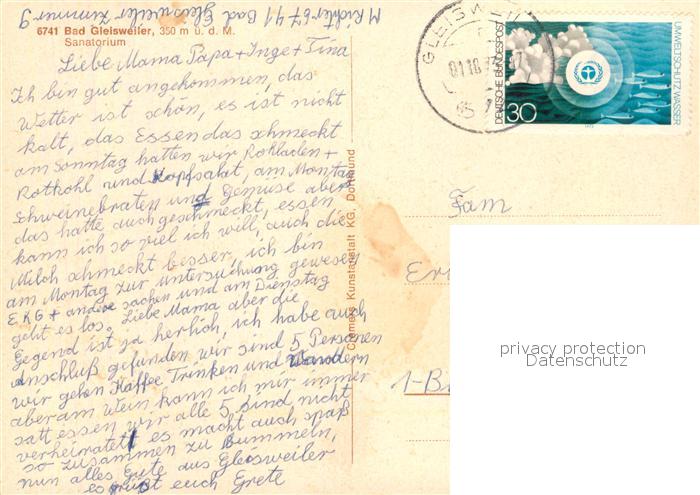 M Richter 6741 Bad Gleisweiler Zimmer 9
6741 Bad Gleisweiler, 350 m ü. d. M.
Sanatorium
Liebe Mama Papa + Inge + Tina
Ich bin gut angekommen, das
Wetter ist schön, es ist nicht
kalt, das Essen das schmeckt
am Sonntag hatten wir Rohladen +
Rotkohl und Kopfsalat, am Montag
Schweinebraten und Gemüse aber
das hatte auch geschmeckt, essen
kann ich so viel ich will, auch die
Milch schmeckt besser, ich bin
am Montag zur untersuchung gewesen
EKG + andere sachen und am Dienstag
geht es los. Liebe Mama aber die
Gegend ist ja herlich, ich habe auch
anschluß gefunden, wir sind 5 Personen
wir gehen Kaffee Trinken und Wandern
aber am Wein kann ich mir immer
satt essen wir alle 5 sind nicht
verheiratet es macht auch spaß
so zusammen zu Bummeln,
nun alles Gute aus Gleisweiler
es grüßt euch Grete
Cramers Kunstanstalt KG, Dortmund
GLEISWEIL
01.10.73
DEUTSCHE BUNDESPOST
30
UMWELTSCHUTZ WASSER
1973
Fam
Er
1-B
privacy protection
Datenschutz